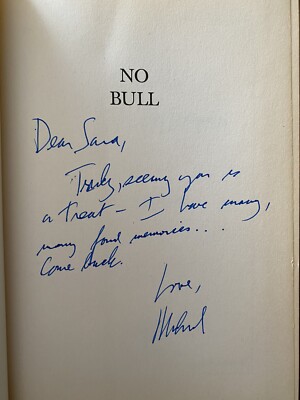 NO
BULL
Dear Sara,
Truly, seeing you is
a treat - I have many,
many fond memories...
Come back.
Love,
Michael